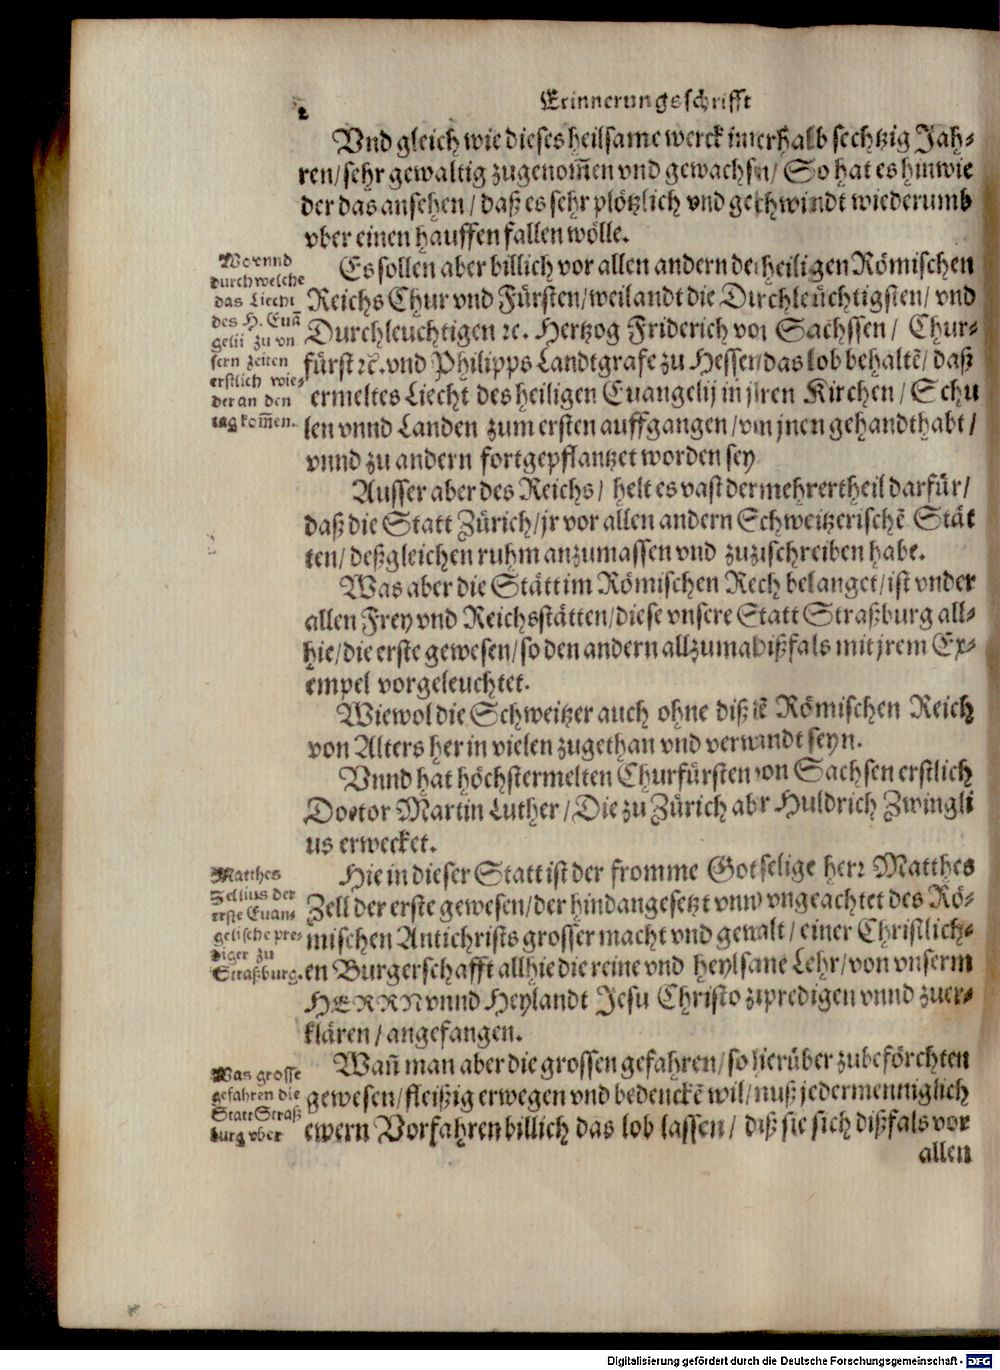 2
Erinnerungsschrifft
Vnd gleich wie dieses heilsame werck innerhalb sechtzig Jah-
ren/sehr gewaltig zugenom̃en vnd gewachsn/ So hat es hinwie
der das ansehen/ daß es sehr plötzlich vnd geschwindt wiederumb
vber einen hauffen fallen wölle.
Wo vnnd
durch welche
das Liecht
des H. Euā
gelii zu vn
sern zeiten
erstlich wie-
der an den
tag kom̃en.
Es sollen aber billich vor allen andern der heiligen Römischen
Reichs Chur vnd Fürsten/weilandt die Durchleuchtigsten/ vnd
Durchleuchtigen ꝛc. Hertzog Friderich von Sachssen/ Chur-
fürst ꝛc. vnd Philipps Landtgrafe zu Hessen/das lob behaltē/ daß
ermeltes Liecht des heiligen Euangelij in jren Kirchen/ Schu
len vnnd Landen zum ersten auffgangen/von jnen gehandthabt/
vnnd zu andern fortgepflantzet worden sey
Ausser aber des Reichs/ helt es vast der mehrertheil darfür/
daß die Statt Zürich/jr vor allen andern Schweitzerischē Stät
ten/ deßgleichen ruhm anzumassen vnd zuzuschreiben habe.
Was aber die Stätt im Römischen Reich belanget/ist vnder
allen Frey vnd Reichsstätten/diese vnsere Statt Straßburg all-
hie/die erste gewesen/so den andern allzumal dißfals mit jrem Ex-
empel vorgeleuchtet.
Wiewol die Schweitzer auch ohne diß dē Römischen Reich
von Alters her in vielen zugethan vnd verwandt seyn.
Vnnd hat höchstermelten Churfürsten von Sachsen erstlich
Doctor Martin Luther/Die zu Zürich aber Huldrich Zwingli
us erwecket.
Matthes
Zellius der
erste Euan-
gelische pre-
diger zu
Straßburg.
Hie in dieser Statt ist der fromme Gotselige herr Matthes
Zell der erste gewesen/der hindangesetzt vnnd vngeachtet des Rö-
mischen Antichrists grosser macht vnd gewalt/ einer Christlich-
en Burgerschafft allhie die reine vnd heylsame Lehr/von vnserm
HERRN vnnd Heylandt Jesu Christo zupredigen vnnd zuer-
klären/ angefangen.
Was grosse
gefahren die
Statt Straß
burg vber
Wañ man aber die grossen gefahren/so hierüber zubeförchten
gewesen/fleißig erwegen vnd bedenckē wil/muß jedermenniglich
ewern Vorfahren billich das lob lassen/ daß sie sich dißfals vor
allen
Digitalisierung gefördert durch die Deutsche Forschungsgemeinschaft - DFG